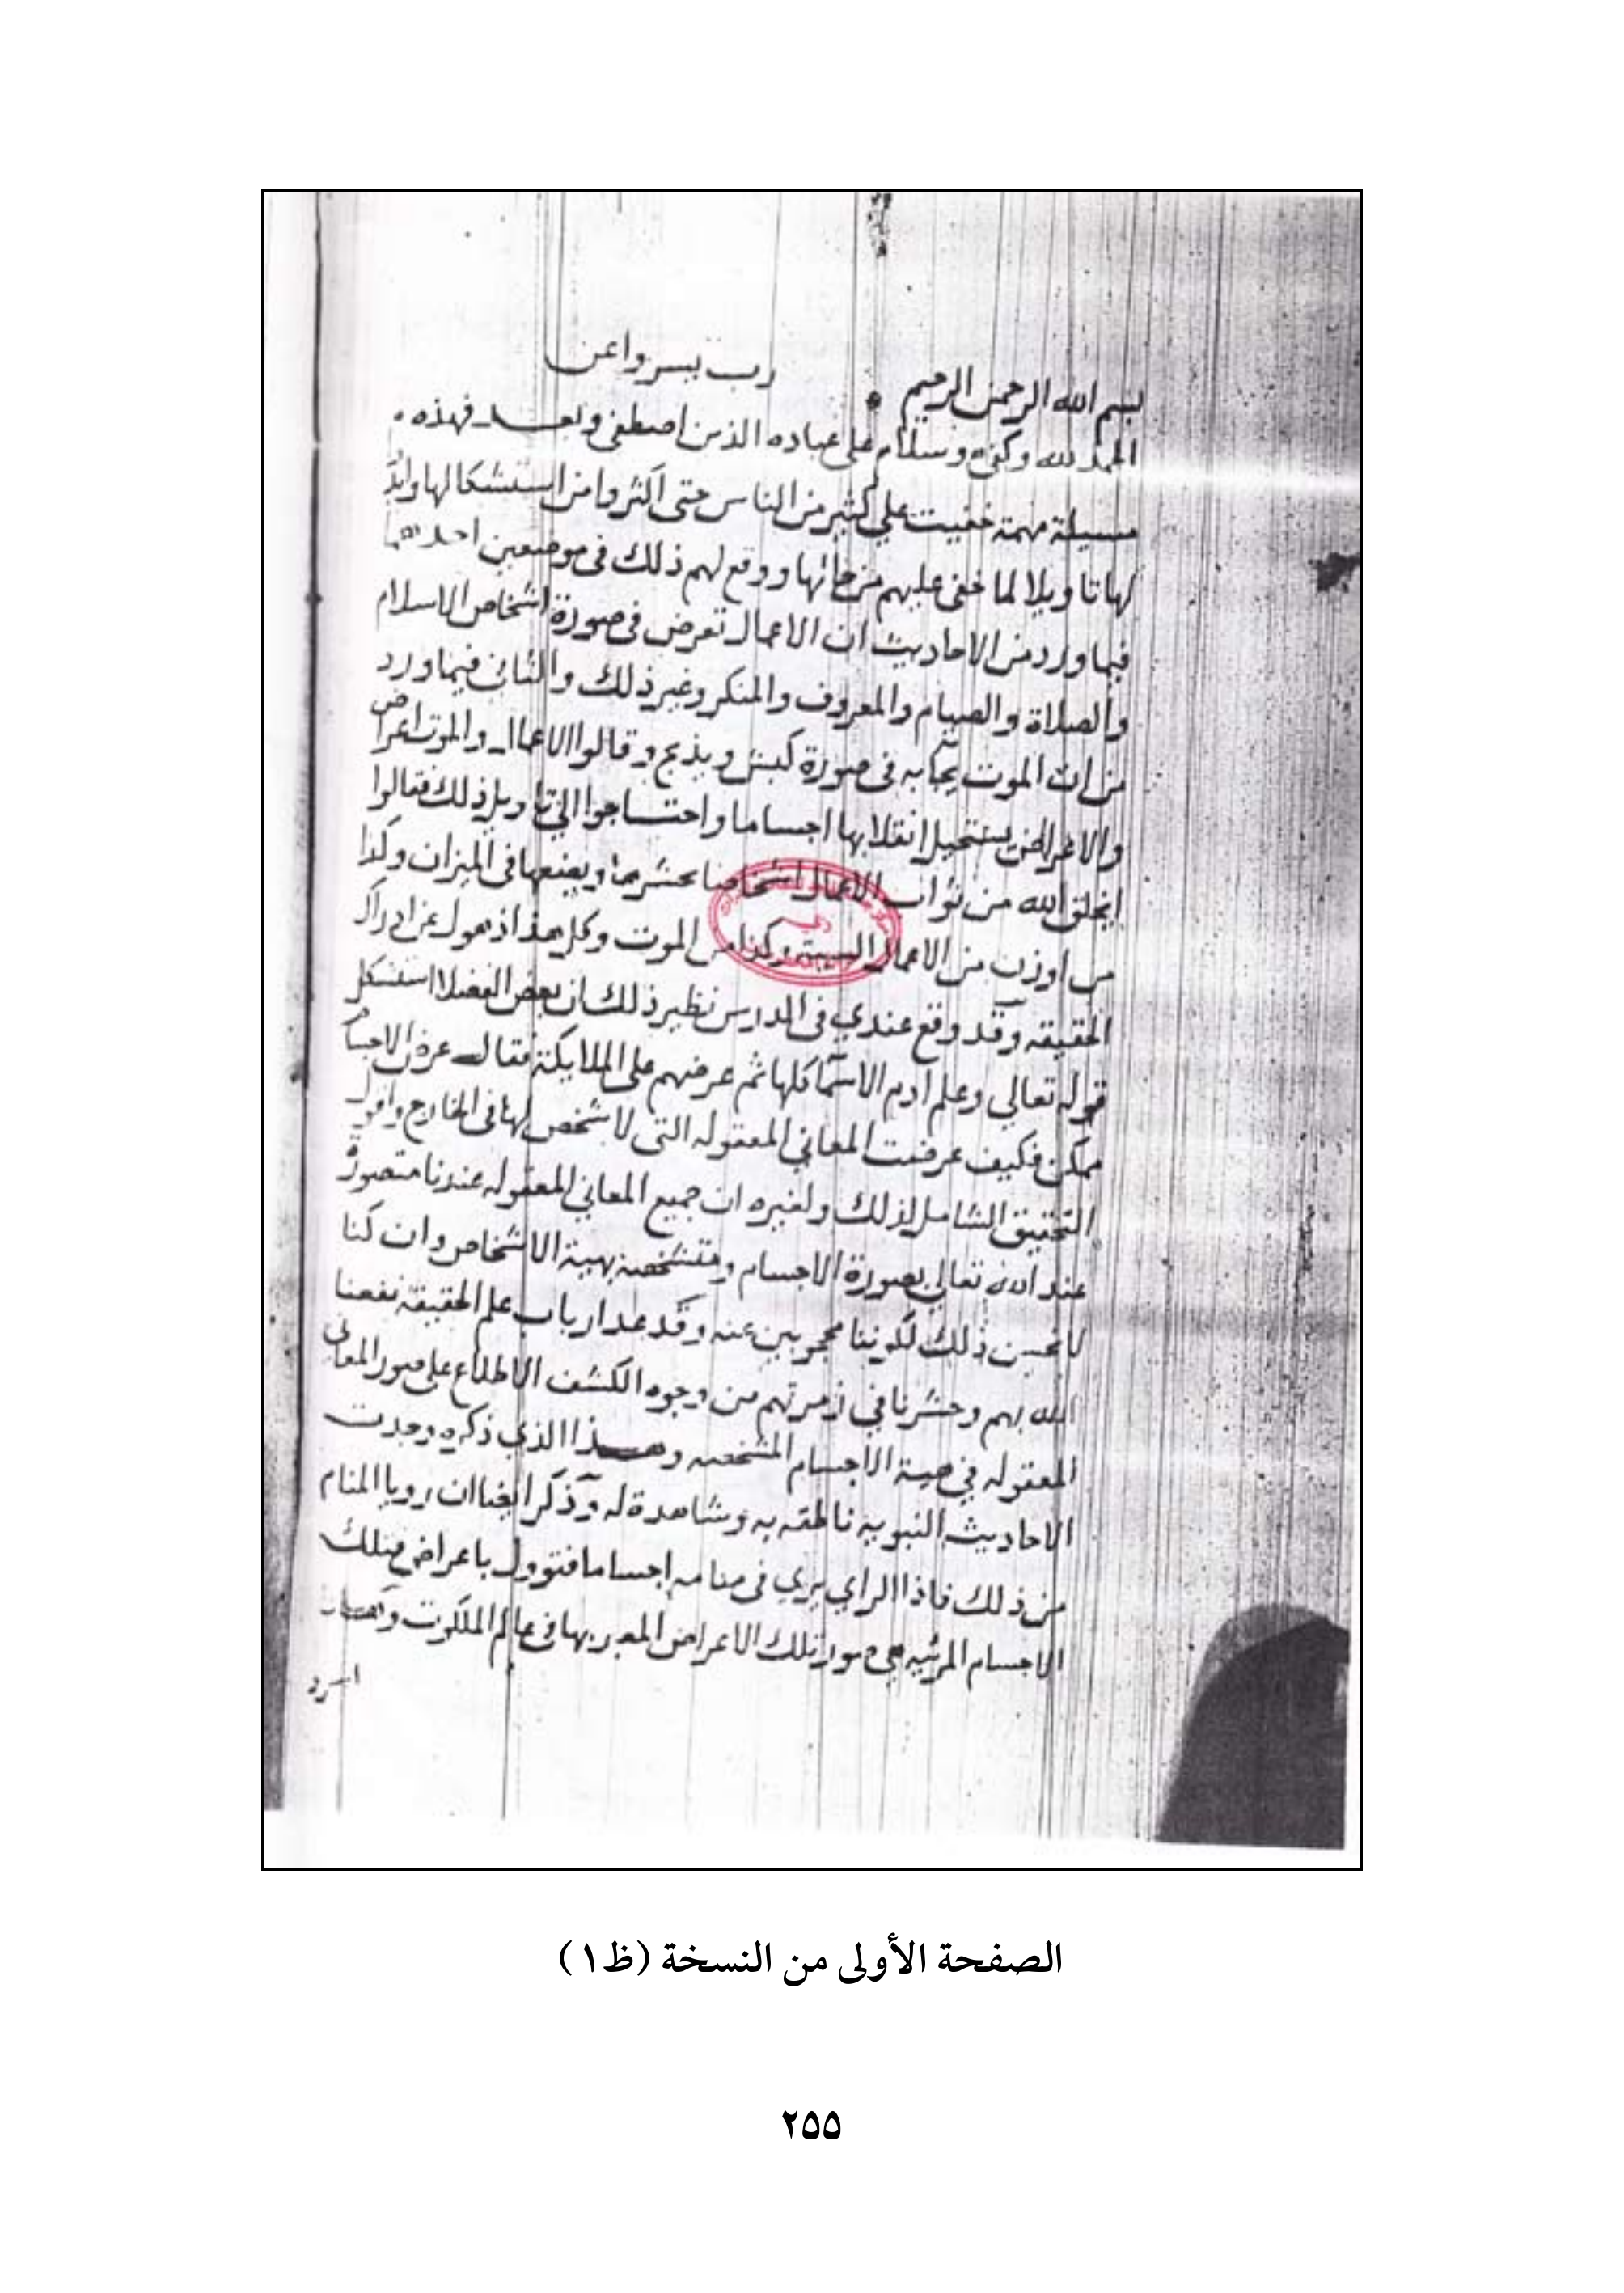 بسم الله الرحمن الرحيم رب يسر واعن
الحمد لله وكفى وسلام على عباده الذين اصطفى وبعد فهذه
مسيلة مهمة خفيت على كثير من الناس حتى اكثروا من استشكالها
لها تاويلا لما خفى عليهم من ووقع لهم ذلك فى موضعين احدهما
فيما ورد من الاحاديث ان الاعمال تعرض فى صورة اشخاص الاسلام
والصلاة والصيام والمعروف والمنكر وغير ذلك والثانى فيما ورد
من ان الموت يجابه فى صورة كبش ويذبح وقالوا الاعمال والموت اعراض
والاعراض يستحيل انقلابها اجساما واحتاجوا الى تاويل ذلك فقالوا
يخلق الله من ثواب الاعمال اشخاصا ويضعها فى الميزان وكذا
من الاعمال السيئة وكذا من الموت وكل هذا ذهول عن ادراك
الحقيقه وقد وقع عندي فى الدرس نظير ذلك ان بعض الفضلا استشكل
قوله تعالى وعلم ادم الاسما كلها ثم عرضهم على الملايكة فقال عرض الاجسام
ممكن فكيف عرضت المعاني المعقوله التى لا تشخص لها فى الخارج واقول
التحقيق الشامل لذلك ولغيره ان جميع المعاني المعقوله عندنا متصورة
عند الله تعالى بصورة الاجسام ومتشخصة بهيئة الاشخاص وان كنا
لا نحس ذلك لكوننا محجوبين عنه وقد عد ارباب علم الحقيقة نفعنا
الله بهم وحشرنا في زمرتهم من وجوه الكشف الاطلاع على صور المعانى
المعقوله في هيئة الاجسام المشخصه وهذا الذي ذكره وجدت
الاحاديث النبويه ناطقه به وشاهدة له وذكر ايضا ان رويا المنام
من ذلك فاذا الراي يرى فى منامه اجساما فتوول باعراض فتلك
الاجسام المرئيه هى صور تلك الاعراض المعبر بها فى عالم الملكوت
الصفحة الأولى من النسخة (ظ١)
٢٥٥